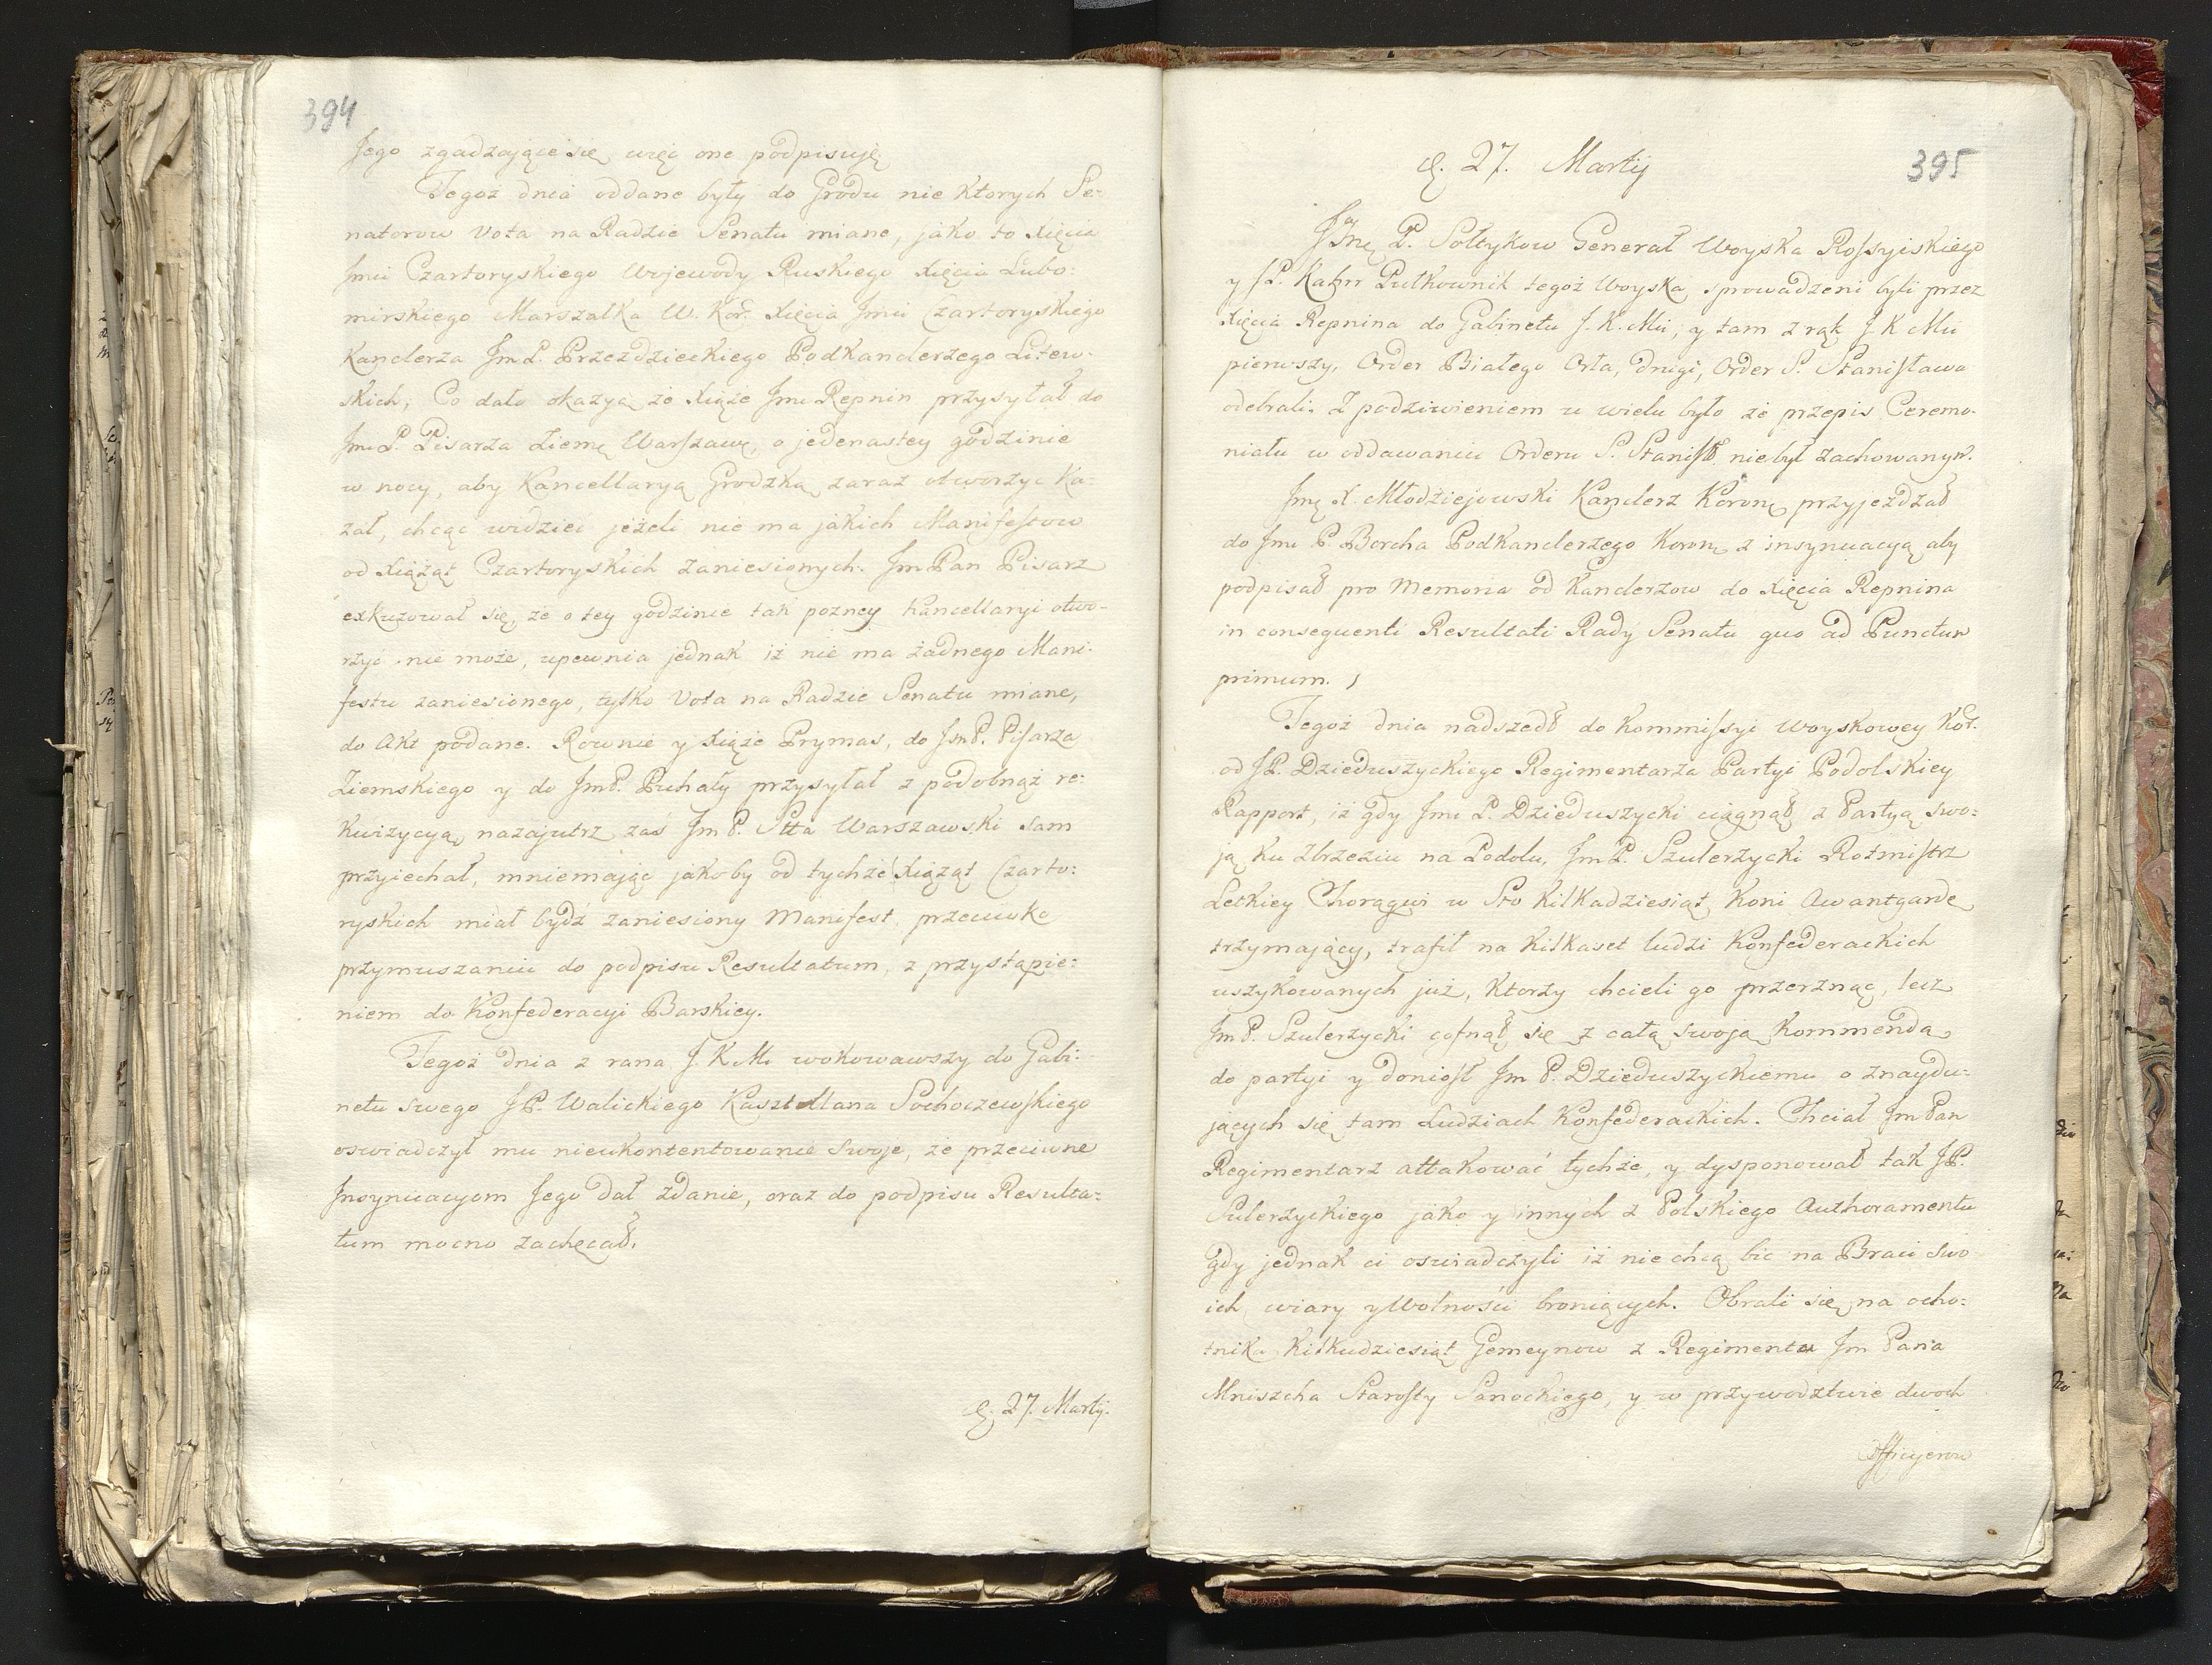 394
Jego zgadzające się więc one podpisuję
Tegoż dnia oddane były do Grodu nie ktorych Se:
natorow Vota na Radzie Senatu miane, jako to Xięcia
Jmci Czartoryskiego Wojewody Ruskiego Xięcia Lubo:
mirskiego Marszałka W. Kor. Xięcia Jmci Czartoryskiego
Kanclerza Jm P. Przezdzieckiego Podkanclerzego Litew-
skich, Co dało okazyą że Xiąże Jmc Repnin przysyłał do
Jm P. Pisarza Ziemę Warszawę, o jedenastey godzinie
w nocy, aby Kancellaryą Grodzką zaraz otworzyc Ka:
zał, chcąc widzieć jeżeli nie ma jakich Manifestow
od Xiążąt Czartoryskich zaniesionych. Jm Pan Pisarz
exkuzował się, że o tey godzinie tak pozney Kancellaryi otwo-
rzyć nie może, upewnia jednak iż nie ma żadnego Mani-
festu zaniesionego, tylko Vota na Radzie Senatu miane,
do Akt podane. Rownie y Xiąże Prymas, do Jm P. Pisarza
Ziemskiego y do Jm P. Puchały przysyłał z podobnąż re:
kwizycyą, nazajutrz zaś Jm P. Stta Warszawski sam
przyiechał, mniemając jakoby od tychże Xiążąt Czarto:
ryskich miał bydź zaniesiony Manifest przeciwko
przymuszaniu do podpisu Resultatum, z przystąpie:
niem do Konfederacyi Barskiey.
Tegoż dnia z rana J. K. M. wokowawszy do Gabi:
netu swego J P. Walickiego Kasztellana Sochaczewskiego
oswiadczył mu nieukontentowanie swoje, że przeciwne
Insynuacyom Jego dał zdanie, oraz do podpisu Resulta:
tum mocno zachęcał.
d. 27. Martij.
d. 27. Martij
395
P. Sołtykow Generał Woyska Rossyiskiego
y J P. Kahrr Pułkownik tegoż Woyska sprowadzeni byli przez
Xięcia Repnina do Gabinetu J. K. Mci, y tam z rąk J. K Mci
pierwszy, Order Białego Orła, drugi, Order S. Stanisława
odebrali. Z podziwieniem u wielu było że przepis Ceremo-
niału w oddawaniu Orderu S. Stanisł. nie był zachowanym.
Jmę X. Młodziejowski Kanclerz Koronę przyjeżdżał
do Jmc P. Borcha Podkanclerzego Koronę z insynuacyą aby
podpisał pro Memoria od Kanclerzow do Xięcia Repnina
in consequenti Resultati Rady Senatu quo ad Punctum
primum.
Tegoż dnia nadszedł do Kommissyi Woyskowey Kor.
od J P. Dzieduszyckiego Regimentarza Partyi Podolskiey
Rapport, iż gdy Jmc P. Dzieduszycki ciągnął z Partyą swo:
ją ku Zbrzeziu na Podolu, Jm P. Szulerzycki Rotmistrz
Letkiey Chorągwi w Sto kilkadziesiąt Koni Awantgardę
trzymający, trafił na kilkaset ludzi Konfederackich
uszykowanych już, ktorzy chcieli go przerznąć, lecz
Jm P. Szulerzycki cofnął się z całą swoją Kommendą
do partyi y doniosł Jm P. Dzieduszyckiemu o znaydu:
jących się tam Ludziach Konfederackich. Chciał Jm Pan
Regimentarz attakować tychże, y dysponował tak J P.
Sulerzyckiego jako y innych z Polskiego Authoramentu
gdy jednak ci oswiadczyli iż nie chcą bić na Braci swo
ich wiary y Wolności broniących. Obrali się na ocho:
tnika kilkudziesiąt Gemeynow z Regimentu Jm Pana
Mniszcha Starosty Sanockiego, y w przywodztwie dwoch
Officyerow